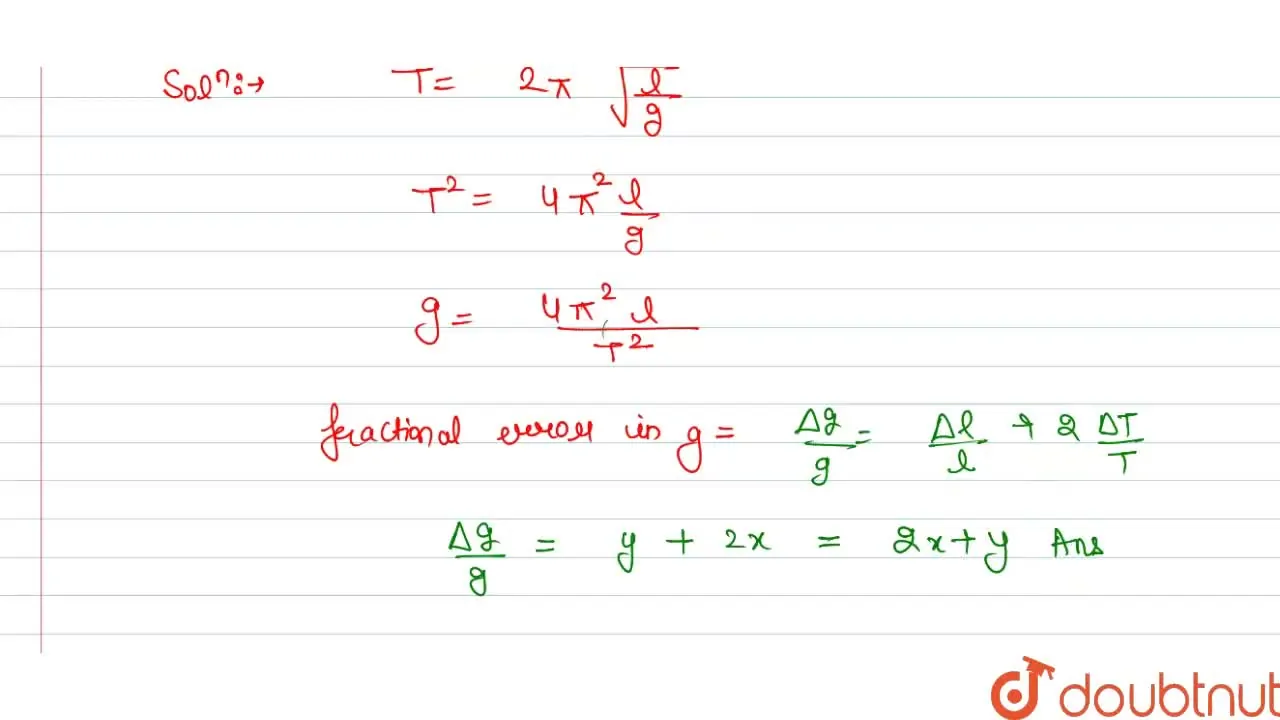 Solⁿ:→ T = 2π √(l/g)
T² = 4π² l/g
g = 4π² l / T²
fractional error in g = Δg/g = Δl/l + 2 ΔT/T
Δg/g = y + 2x = 2x + y Ans
doubtnut